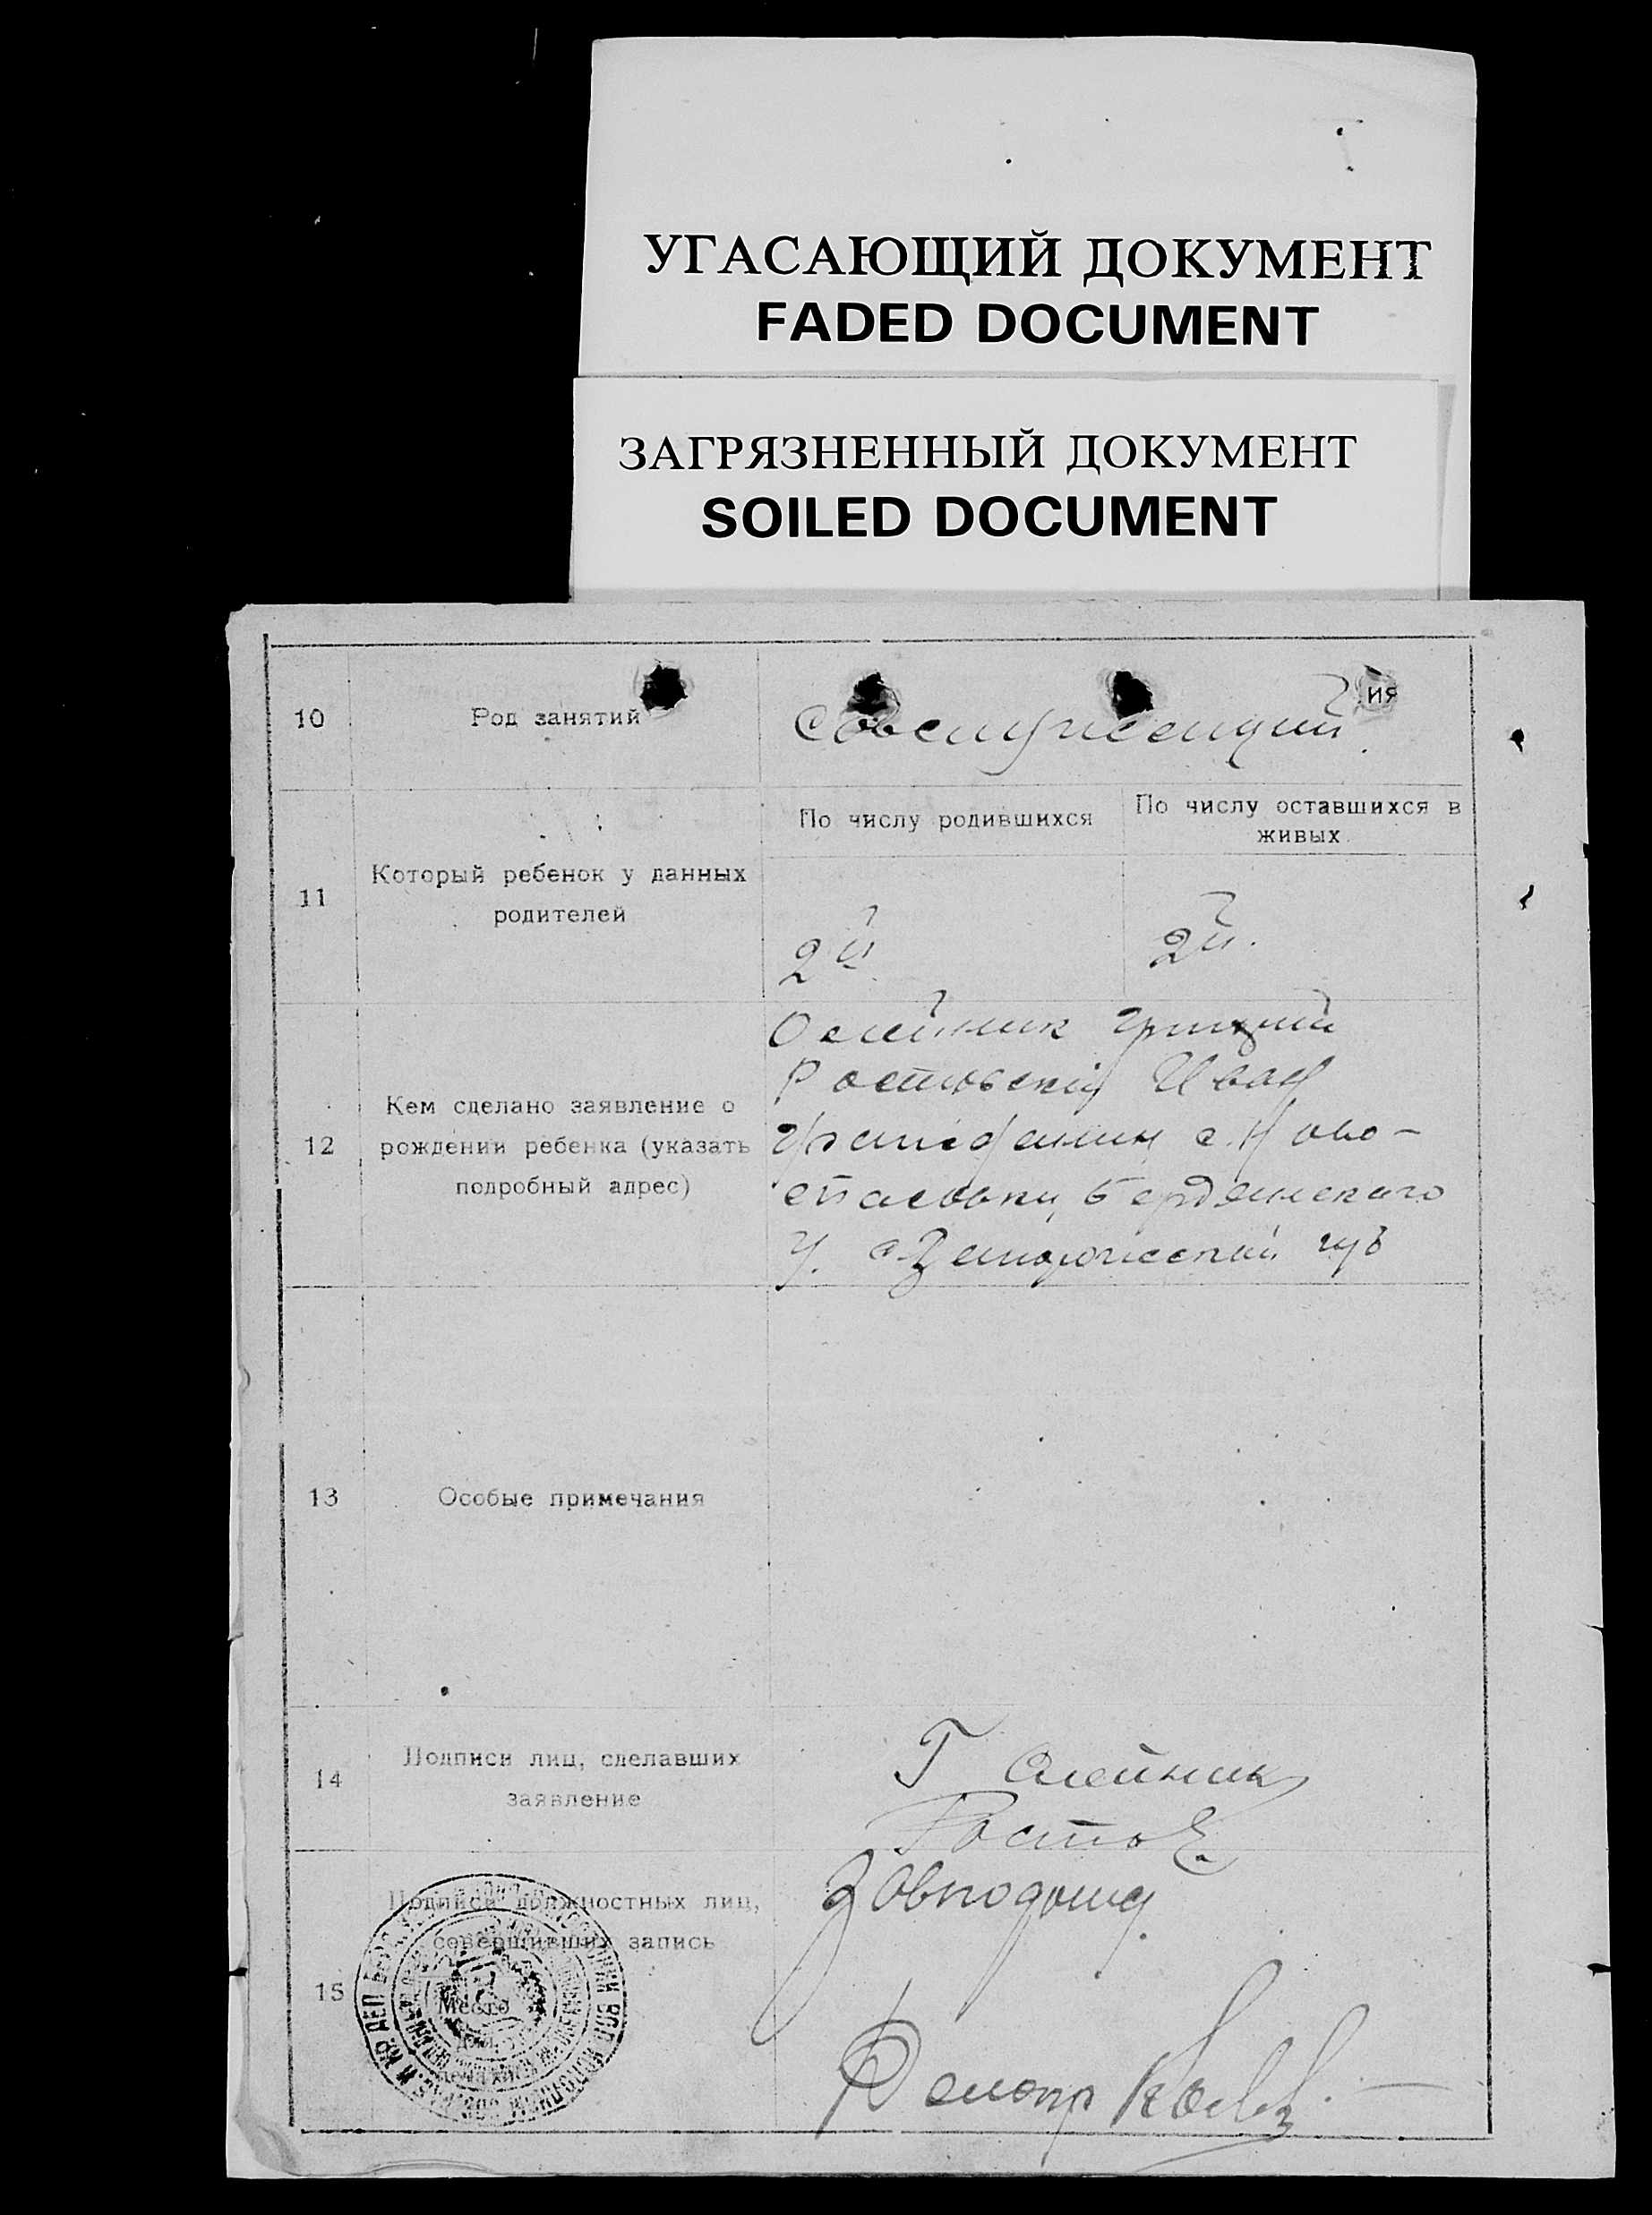 УГАСАЮЩИЙ ДОКУМЕНТ
FADED DOCUMENT
ЗАГРЯЗНЕННЫЙ ДОКУМЕНТ
SOILED DOCUMENT
ия
10
Род занятий
Совслужащий
11
Который ребенок у данных
родителей
По числу родившихся
По числу оставшихся в
живых
2й
2й.
12
Кем сделано заявление о
рождении ребенка (указать
подробный адрес)
Олейник
Ростовский Иван
гражданин с. Ново-
спасовки, Бердянского
у. губ
13
Особые примечания
14
Подписи лиц, сделавших
заявление
Г Олейник
15
Подписи должностных лиц,
совершивших запись
Место
Завподотд.
Делопр